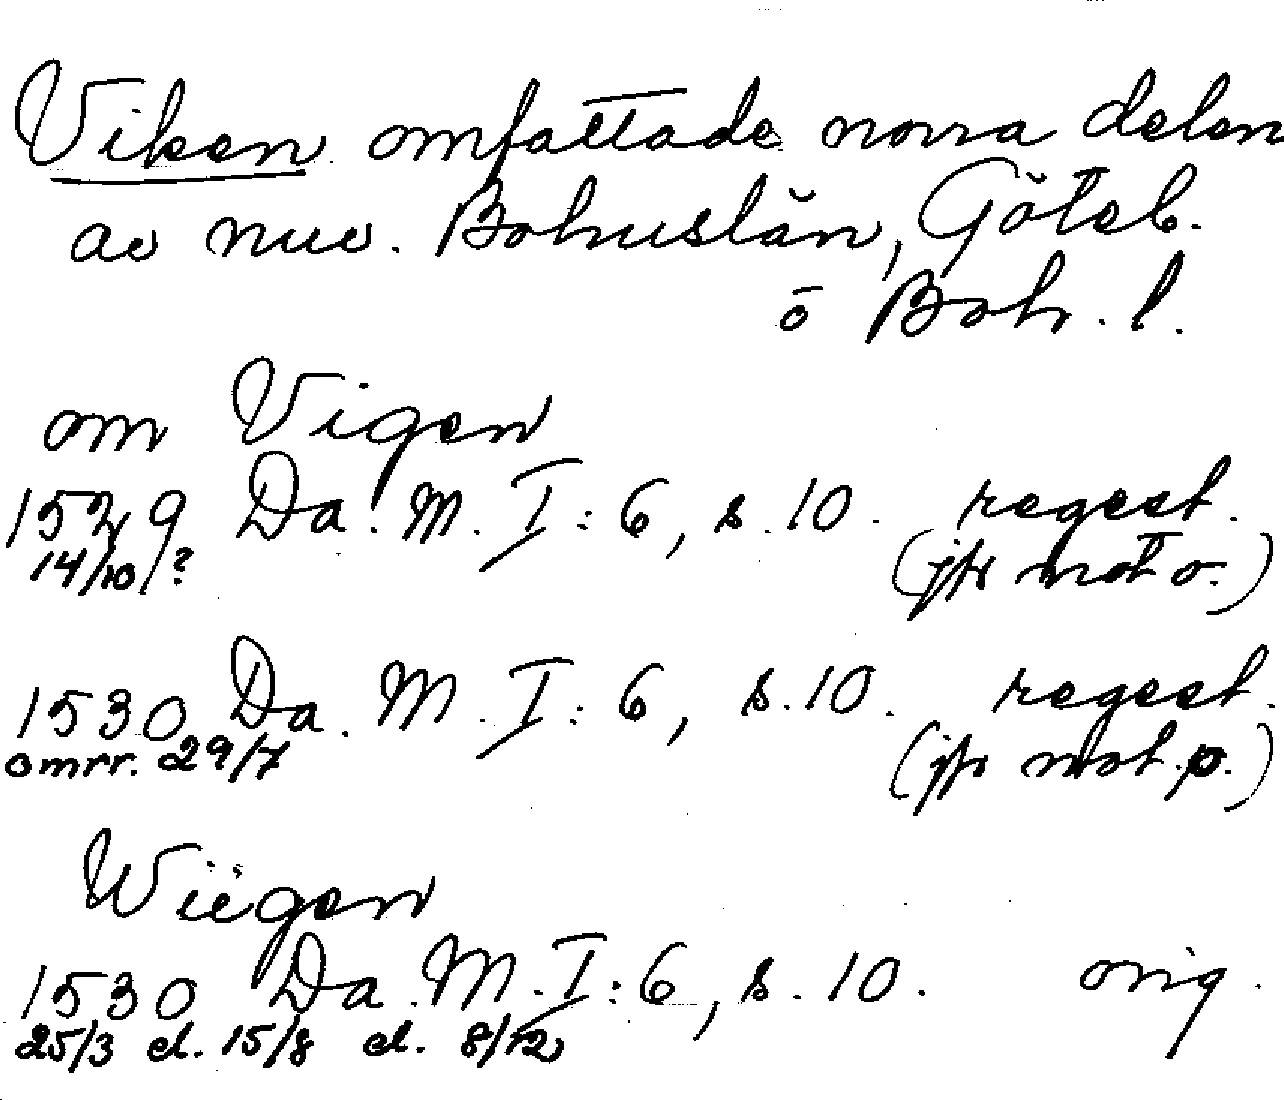 Viken omfattade norra delen
av nuv. Bohuslän, Göteb.
o Boh. l.
om Vigen
1529 Da. M. I:6, s. 10. regest.
14/10? (jfr not o.)
1530 Da. M. I:6, s. 10. regest.
omkr. 29/7 (jfr not p.)
Wiigen
1530 Da. M. I:6, s. 10. orig.
25/3 el. 15/8 el. 8/12